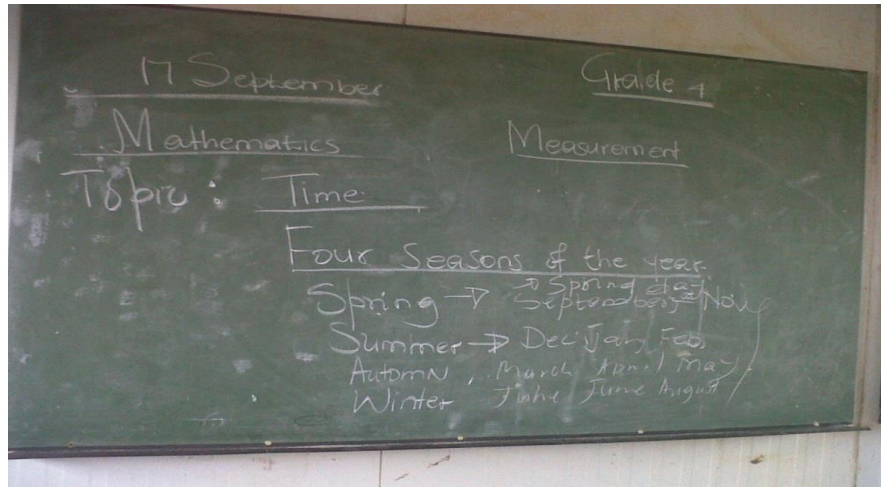 17 September Grade 4
Mathematics Measurement
Topic : Time
Four Seasons of the year
→ Spring day
Spring → September, Nov
Summer → Dec, Jan, Feb,
Automn , March April May
Winter June August